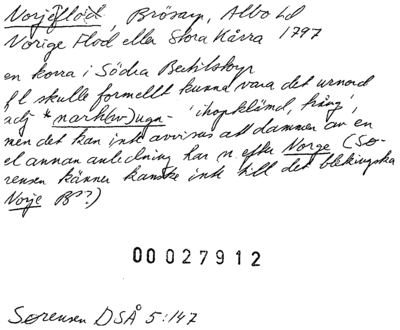 Norjeflod, Brösarp, Albo hd
Norige Flod eller Stora Kärra 1797
en korra i Södra Bertilstorp
fl skulle formellt kunna vara det urnord
adj *nark(w)uga- 'ihopklämd, trång',
men det kan ink avvisas att dammen av en
el annan anledning har n efter Norge (Sø-
rensen känner kanske ink till det blekingska
Norje By?)
00027912
Sørensen DSÅ 5:147